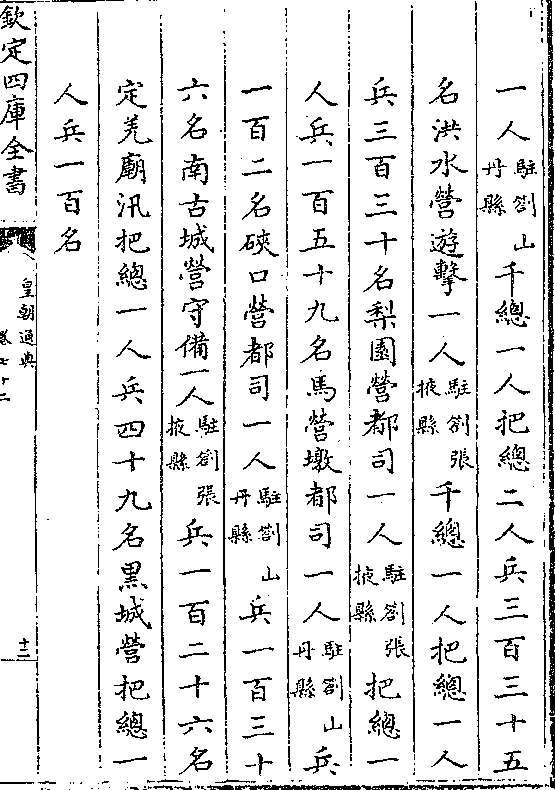 一人駐劄山丹縣千總一人把總二人兵三百三十五
名洪水營遊擊一人駐劄張掖縣千總一人把總一人
兵三百三十名梨園營都司一人駐劄張掖縣把總一
人兵一百五十九名馬營墩都司一人駐劄山丹縣兵
一百二名硤口營都司一人駐劄山丹縣兵一百三十
六名南古城營守備一人駐劄張掖縣兵一百二十六名
定羌廟汛把總一人兵四十九名黑城營把總一
人兵一百名
欽定四庫全書
皇朝通典
卷七十二
十二